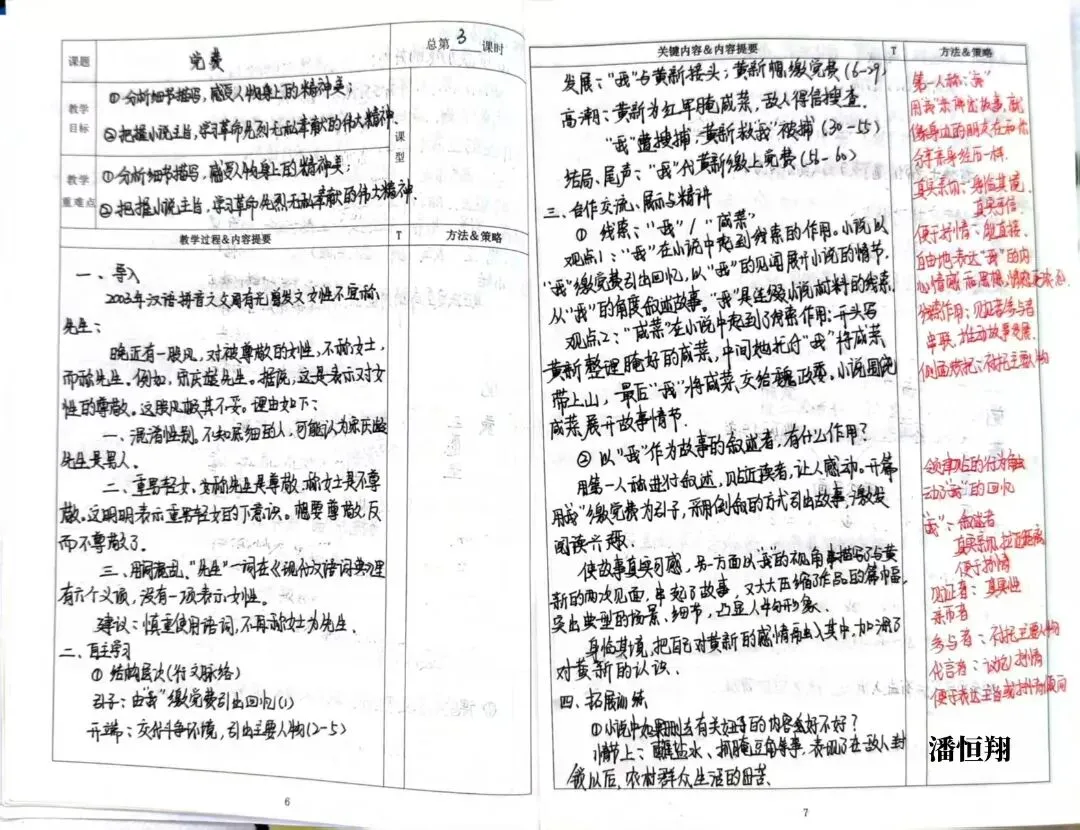 课题
党费
总第 3 课时
教学目标
①分析细节描写，感受人物身上的精神美；
②把握小说主旨，学习革命先烈无私奉献的伟大精神。
课型
教学重难点
①分析细节描写，感受人物身上的精神美；
②把握小说主旨，学习革命先烈无私奉献的伟大精神.
教学过程&内容提要
T
方法&策略
一、导入
2003年汉语拼音之父周有光发文女性不宜称
先生：
晚近有一股风，对被尊敬的女性，不称女士，
而称先生。例如，宋庆龄先生。据说，这是表示对女
性的尊敬。这股风极其不妥。理由如下：
一、混淆性别。不知底细的人，可能认为宋庆龄
先生是男人。
二、重男轻女、女称先生是尊敬，称女士是不尊
敬。这明明表示重男轻女的下意识。想要尊敬反
而不尊敬了。
三、用词混乱。“先生”一词在《现代汉语词典》里
有六个义项，没有一项表示女性。
建议：慎重使用语词，不再称女士为先生。
二、自主学习
①结构层次（行文脉络）
引子：由“我”缴党费引出回忆(1)
开端：交代斗争环境，引出主要人物(2-5)
6
关键内容&内容提要
T
方法&策略
发展：“我”与黄新接头；黄新想缴党费(6-29)
高潮：黄新为红军腌咸菜，敌人得信搜查.
“我”遭搜捕，黄新救“我”被捕(30-55)
结局、尾声：“我”代黄新缴上党费(56-60)
三、合作交流、展示与精讲
①线索：“我”/“咸菜”
观点1：“我”在小说中起到线索的作用。小说以
“我”缴党费引出回忆，以“我”的见闻展开小说的情节.
从“我”的角度叙述故事。“我”是连缀小说材料的线索.
观点2：“咸菜”在小说中起到了线索作用：开头写
黄新整理腌好的咸菜，中间她托付“我”将咸菜
带上山，最后“我”将咸菜交给魏政委。小说围绕
咸菜展开故事情节.
②以“我”作为故事的叙述者，有什么作用？
用第一人称进行叙述，贴近读者，让人感动。开篇
用“我”缴党费为引子，采用倒叙的方式引出故事，激发
阅读兴趣.
使故事真实可感，另一方面以“我”的视角事描写了与黄
新的两次见面，串起了故事，又大大压缩了作品的篇幅，
突出典型的场景、细节，凸显人物形象.
身临其境，把自己对黄新的感情融入其中，加深了
对黄新的认识.
四、拓展训练
①小说中如果删去有关妞子的内容，好不好？
情节上：盐水、抓腌豆角等事，表现了在敌人封
锁以后，农村群众生活的困苦.
第一人称：“我”
用“我”来讲述故事，就
像身边的朋友在和你
分享亲身经历一样.
真实亲切：身临其境，
真实可信.
便于抒情：能直接、
自由地表达“我”的内
心情感
线索作用：见证者参与者
串联，推动故事发展.
侧面衬托：衬托主要人物
动了“我”的回忆
“我”：叙述者
真实亲切，拉近距离，
便于抒情
见证者：真实性
亲历者
参与者：衬托主要人物
代言者：议论 抒情
潘恒翔
7